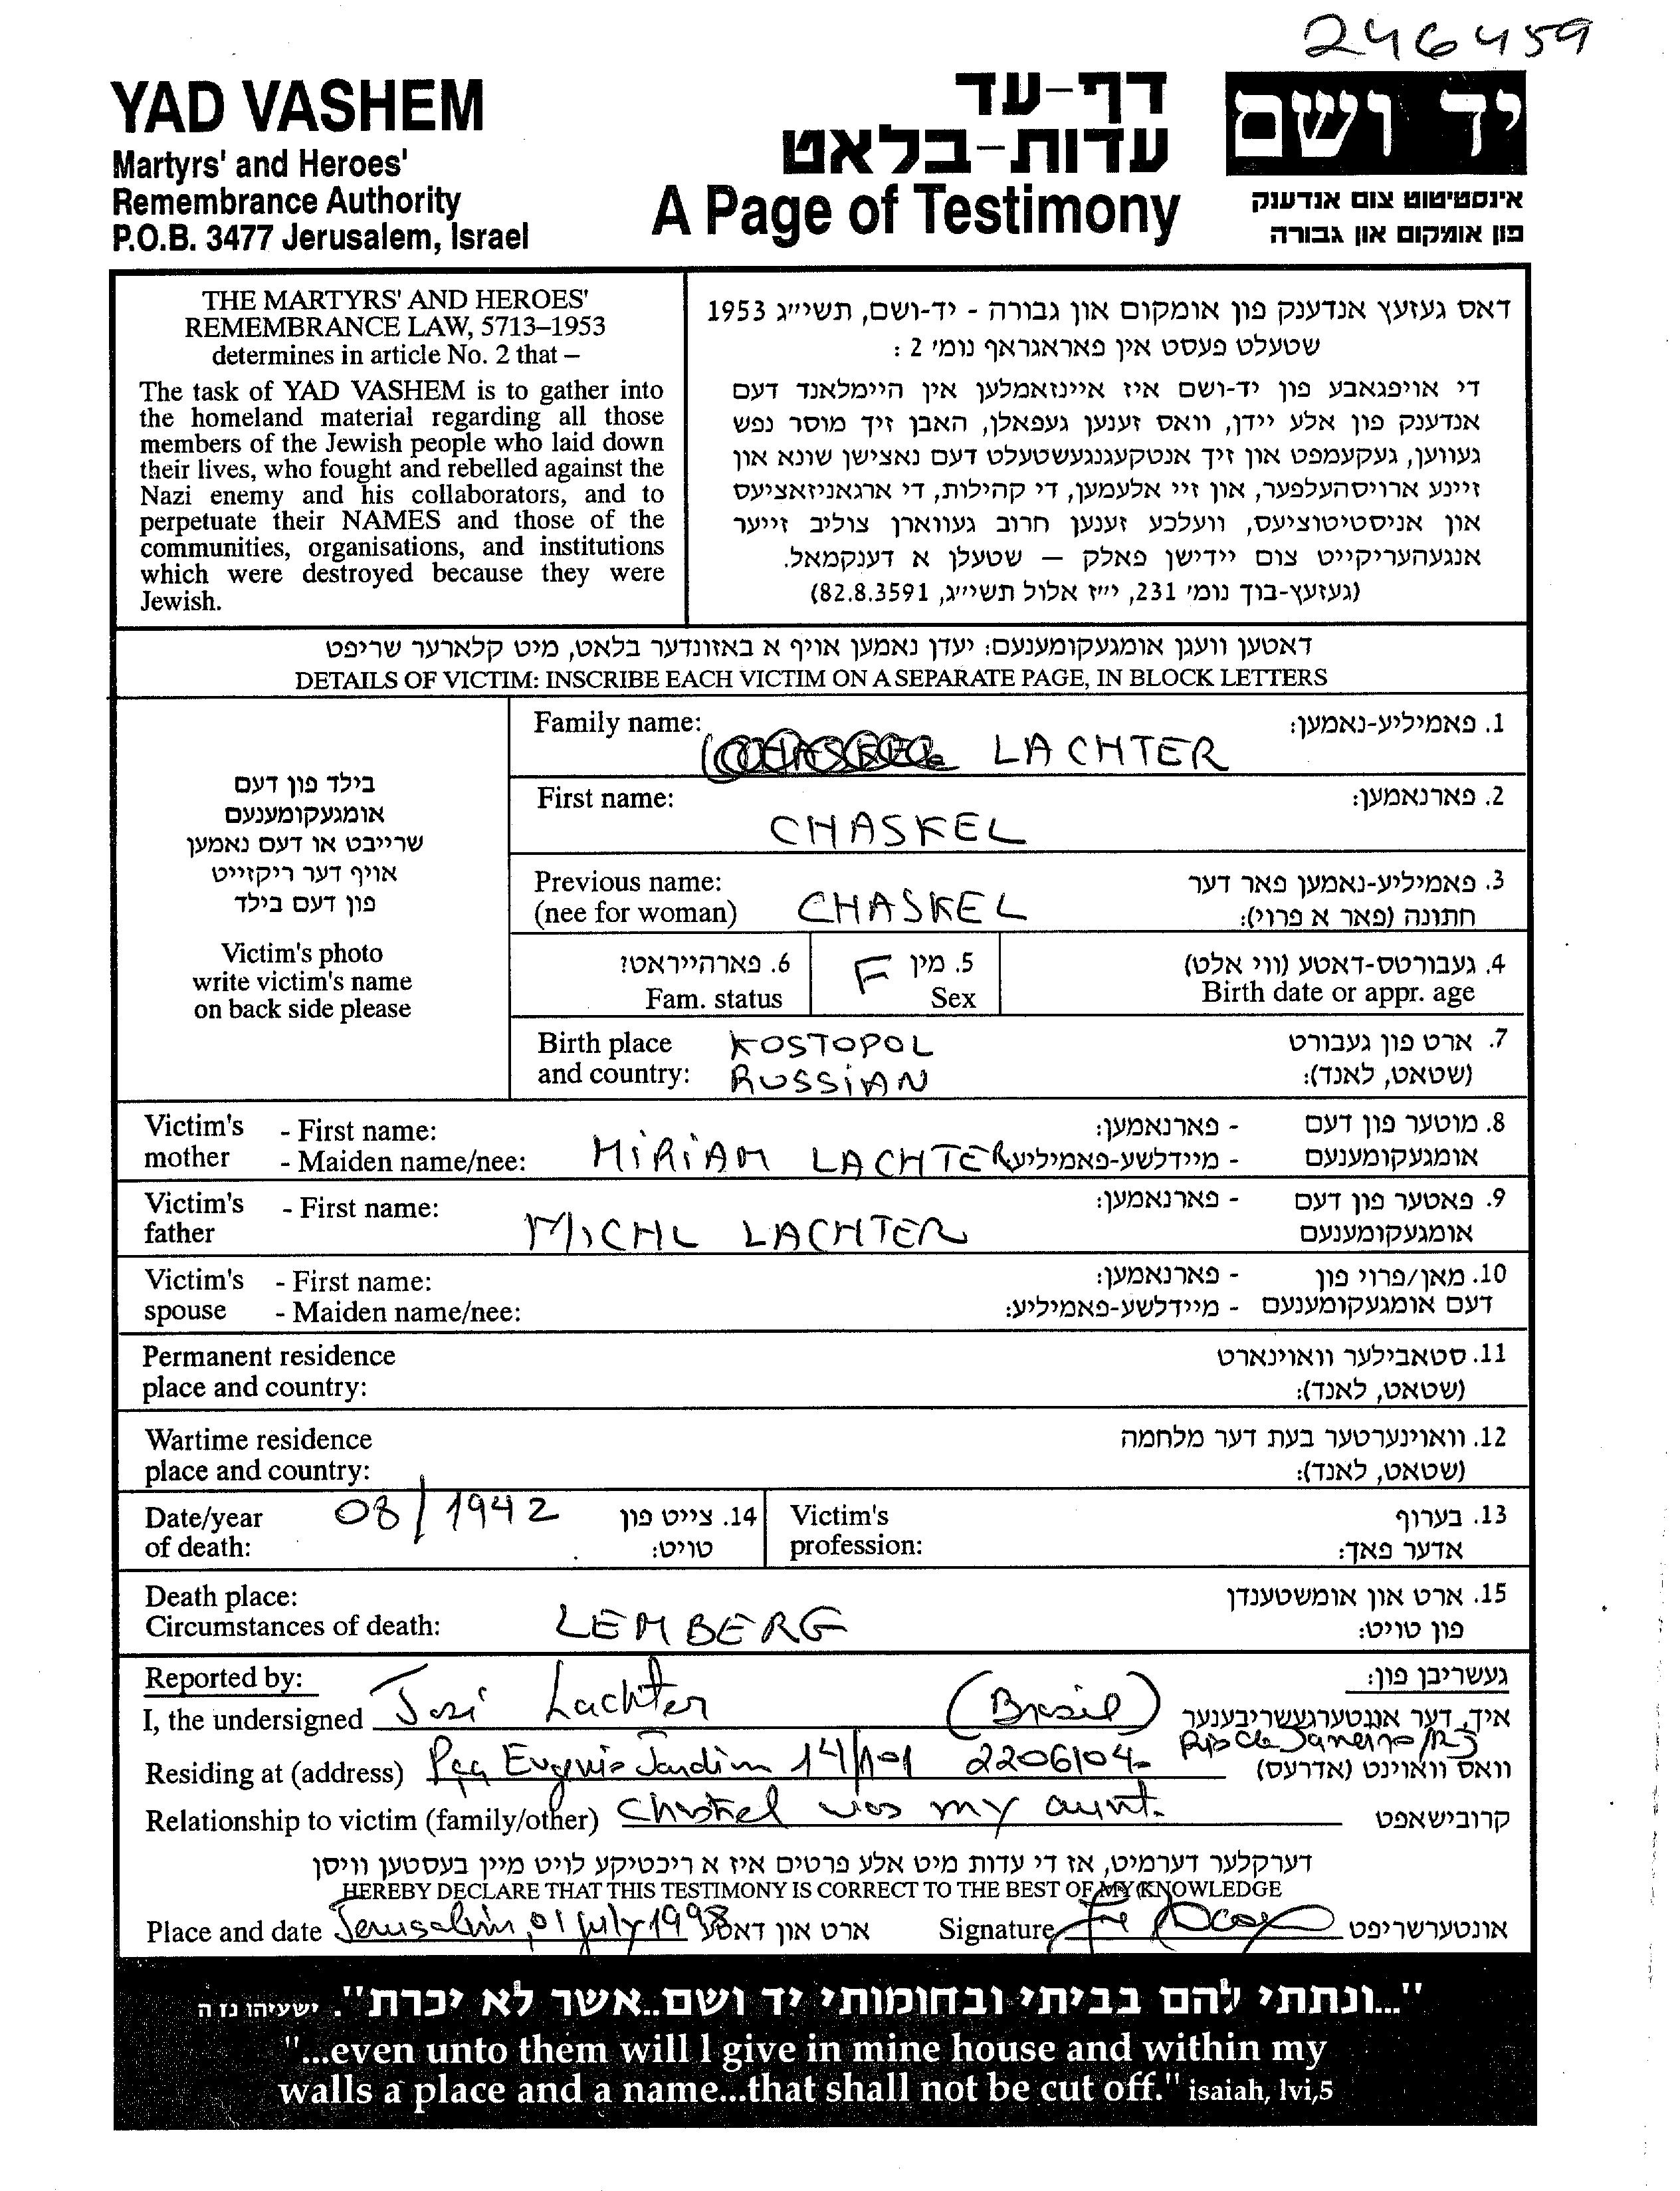 246459
YAD VASHEM
Martyrs' and Heroes'
Remembrance Authority
P.O.B. 3477 Jerusalem, Israel
דף-עד
עדות-בלאט
A Page of Testimony
יד ושם
אינסטיטוט צום אנדענק
פון אומקום און גבורה
THE MARTYRS' AND HEROES'
REMEMBRANCE LAW, 5713–1953
determines in article No. 2 that –
The task of YAD VASHEM is to gather into
the homeland material regarding all those
members of the Jewish people who laid down
their lives, who fought and rebelled against the
Nazi enemy and his collaborators, and to
perpetuate their NAMES and those of the
communities, organisations, and institutions
which were destroyed because they were
Jewish.
דאס געזעץ אנדענק פון אומקום און גבורה - יד-ושם, תשי״ג 1953
שטעלט פעסט אין פאראגראף נומ׳ 2 :
די אויפגאבע פון יד-ושם איז איינזאמלען אין היימלאנד דעם
אנדענק פון אלע יידן, וואס זענען געפאלן, האבן זיך מוסר נפש
געווען, געקעמפט און זיך אנטקעגנגעשטעלט דעם נאצישן שונא און
זיינע ארויסהעלפער, און זיי אלעמען, די קהילות, די ארגאניזאציעס
און אניסטיטוציעס, וועלכע זענען חרוב געווארן צוליב זייער
אנגעהעריקייט צום יידישן פאלק — שטעלן א דענקמאל.
(געזעץ-בוך נומ׳ 231, י״ז אלול תשי״ג, 82.8.3591)
דאטען וועגן אומגעקומענעם: יעדן נאמען אויף א באזונדער בלאט, מיט קלארער שריפט
DETAILS OF VICTIM: INSCRIBE EACH VICTIM ON A SEPARATE PAGE, IN BLOCK LETTERS
בילד פון דעם
אומגעקומענעם
שרייבט או דעם נאמען
אויף דער ריקזייט
פון דעם בילד
Victim's photo
write victim's name
on back side please
Family name: LACHTER 1. פאמיליע-נאמען:
First name: CHASKEL 2. פארנאמען:
Previous name: 3. פאמיליע-נאמען פאר דער
(nee for woman) CHASKEL חתונה (פאר א פרוי):
6. פארהייראט? F 5. מין 4. געבורטס-דאטע (ווי אלט)
Fam. status Sex Birth date or appr. age
Birth place KOSTOPOL 7. ארט פון געבורט
and country: RUSSIAN (שטאט, לאנד):
Victim's - First name: - פארנאמען: 8. מוטער פון דעם
mother - Maiden name/nee: MIRIAM LACHTER - מיידלשע-פאמיליע אומגעקומענעם
Victim's - First name: - פארנאמען: 9. פאטער פון דעם
father MICHL LACHTER אומגעקומענעם
Victim's - First name: - פארנאמען: 10. מאן/פרוי פון
spouse - Maiden name/nee: - מיידלשע-פאמיליע: דעם אומגעקומענעם
Permanent residence 11. סטאבילער וואוינארט
place and country: (שטאט, לאנד):
Wartime residence 12. וואוינערטער בעת דער מלחמה
place and country: (שטאט, לאנד):
Date/year 08/1942 14. צייט פון Victim's 13. בערוף
of death: טויט: profession: אדער פאך:
Death place: 15. ארט און אומשטענדן
Circumstances of death: LEMBERG פון טויט:
Reported by: געשריבן פון:
I, the undersigned José Lachter (Brasil) איך, דער אונטערגעשריבענער
Rio de Janeiro/RJ
Residing at (address) Pça Eugenio Jardim 14/1101 22061040 וואס וואוינט (אדרעס)
Relationship to victim (family/other) Chaskel was my aunt. קרובישאפט
דערקלער דערמיט, אז די עדות מיט אלע פרטים איז א ריכטיקע לויט מיין בעסטען וויסן
HEREBY DECLARE THAT THIS TESTIMONY IS CORRECT TO THE BEST OF MY KNOWLEDGE
Place and date Jerusalem, 01 july 1998 ארט און דאטע Signature אונטערשריפט
"...ונתתי להם בביתי ובחומותי יד ושם..אשר לא יכרת". ישעיהו נז ה
"...even unto them will I give in mine house and within my
walls a place and a name...that shall not be cut off." isaiah, lvi,5